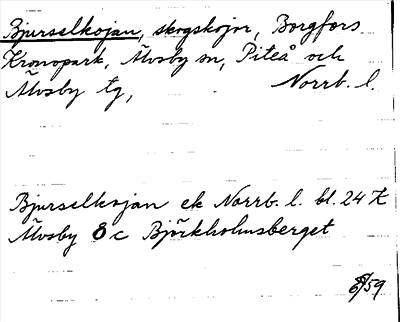 Bjurselkojan, skogskojor, Borgfors
Kronopark, Älvsby sn, Piteå och
Älvsby tg, Norrb. l.
Bjurselkojan ek Norrb. l. bl. 24 K
Älvsby 8 c Björkholmsberget
8/59